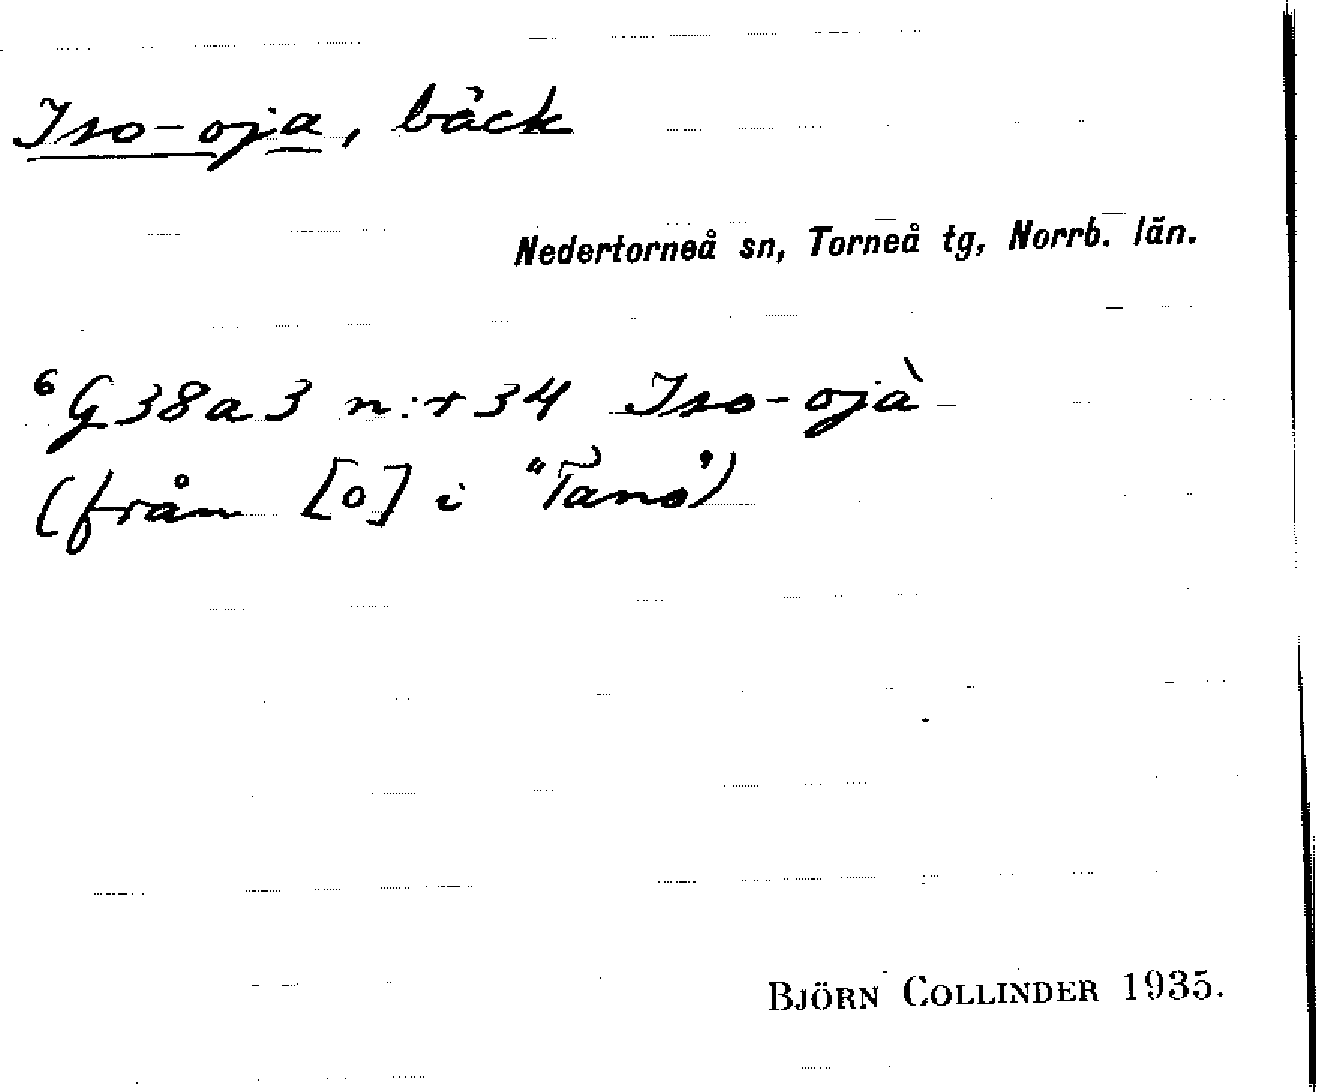 Iso-oja, bäck
Nedertorneå sn, Torneå tg, Norrb. län.
⁶G38a3 n:r 34 Iso-ojà
(från [o] i "Tanö")
BJÖRN COLLINDER 1935.